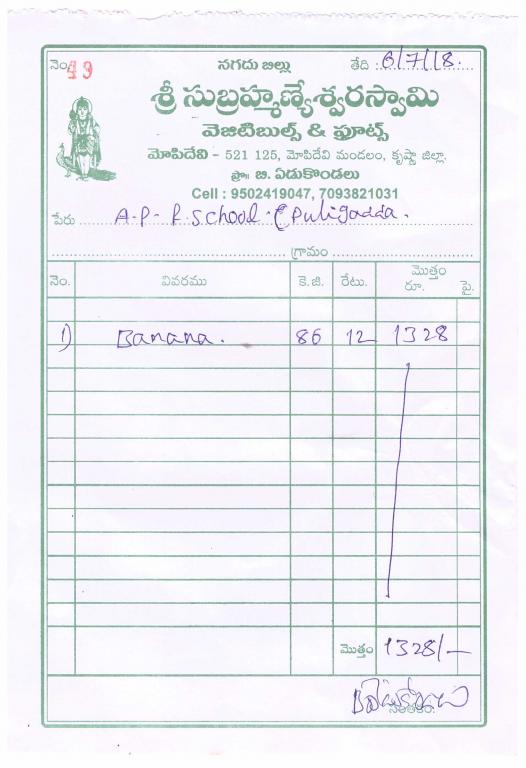 నెం. 49 నగదు బిల్లు తేది : 6/7/18.
శ్రీ సుబ్రహ్మణ్యేశ్వరస్వామి
వెజిటిబుల్స్ & ఫ్రూట్స్
మోపిదేవి - 521 125, మోపిదేవి మండలం, కృష్ణా జిల్లా.
ప్రొ॥ బి. ఏడుకొండలు
Cell : 9502419047, 7093821031
పేరు A-P- R School Puligadda.
గ్రామం
నెం. వివరము కె.జి. రేటు. మొత్తం రూ. పై.
1) Banana. 86 12 1328
మొత్తం 1328/-
సంతకం.